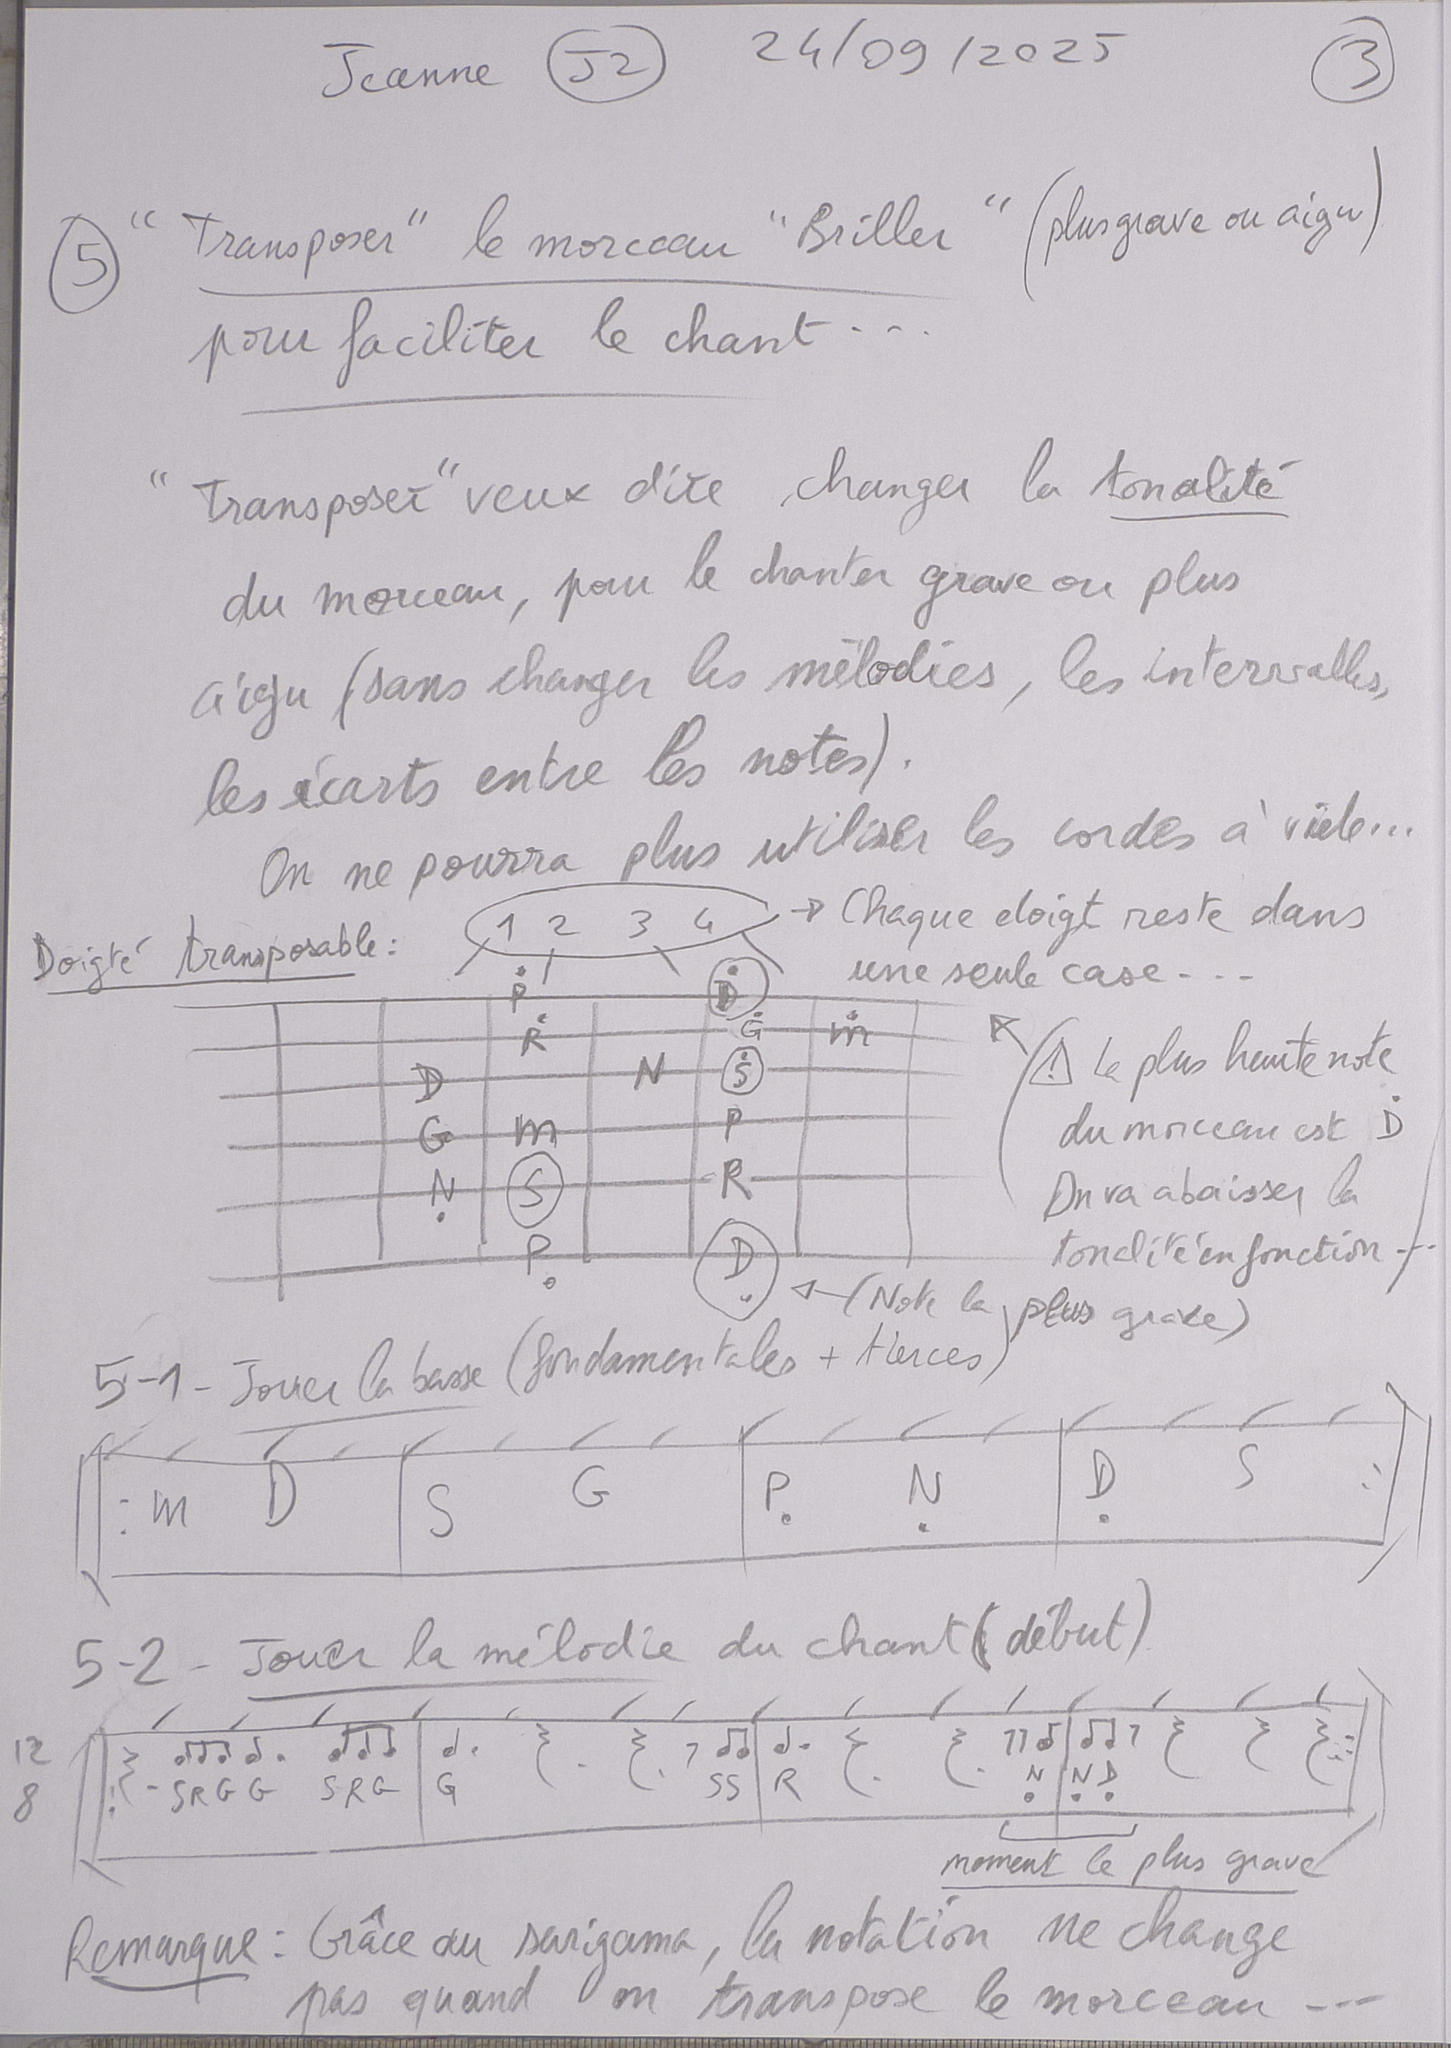 Jeanne J2 24/09/2025 3
5 "Transposer" le morceau "Briller" (plus grave ou aigu)
pour faciliter le chant ...
"Transposer" veux dire changer la tonalité
du morceau, pour le chanter grave ou plus
aigu (sans changer les mélodies, les intervalles,
les écarts entre les notes).
On ne pourra plus utiliser les cordes à vide...
Doigté transposable : 1 2 3 4 → Chaque doigt reste dans
une seule case ...
P Ḋ
Ṙ Ġ ṁ
D N Ṡ
G m P
Ṇ S R
P̣ Ḍ
⚠ La plus haute note
du morceau est Ḋ
On va abaisser la
tonalité en fonction ...
← (Note la plus grave)
5-1- Jouer la basse (fondamentales + tierces)
: m D | S G | P̣ Ṇ | Ḍ S :
5-2- Jouer la mélodie du chant (début)
12
8
S R G G S R G | G S S | R Ṇ | Ṇ Ḍ
moment le plus grave
Remarque : Grâce au sarigama, la notation ne change
pas quand on transpose le morceau ...